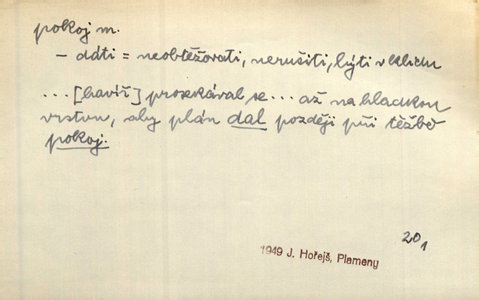 pokoj m.
– dáti = neobtěžovati, nerušiti, býti v klidu
...[havíř] prosekával se... až na hladkou
vrstvu, aby plán dal později při těžbě
pokoj.
20₁
1949 J. Hořejš, Plameny